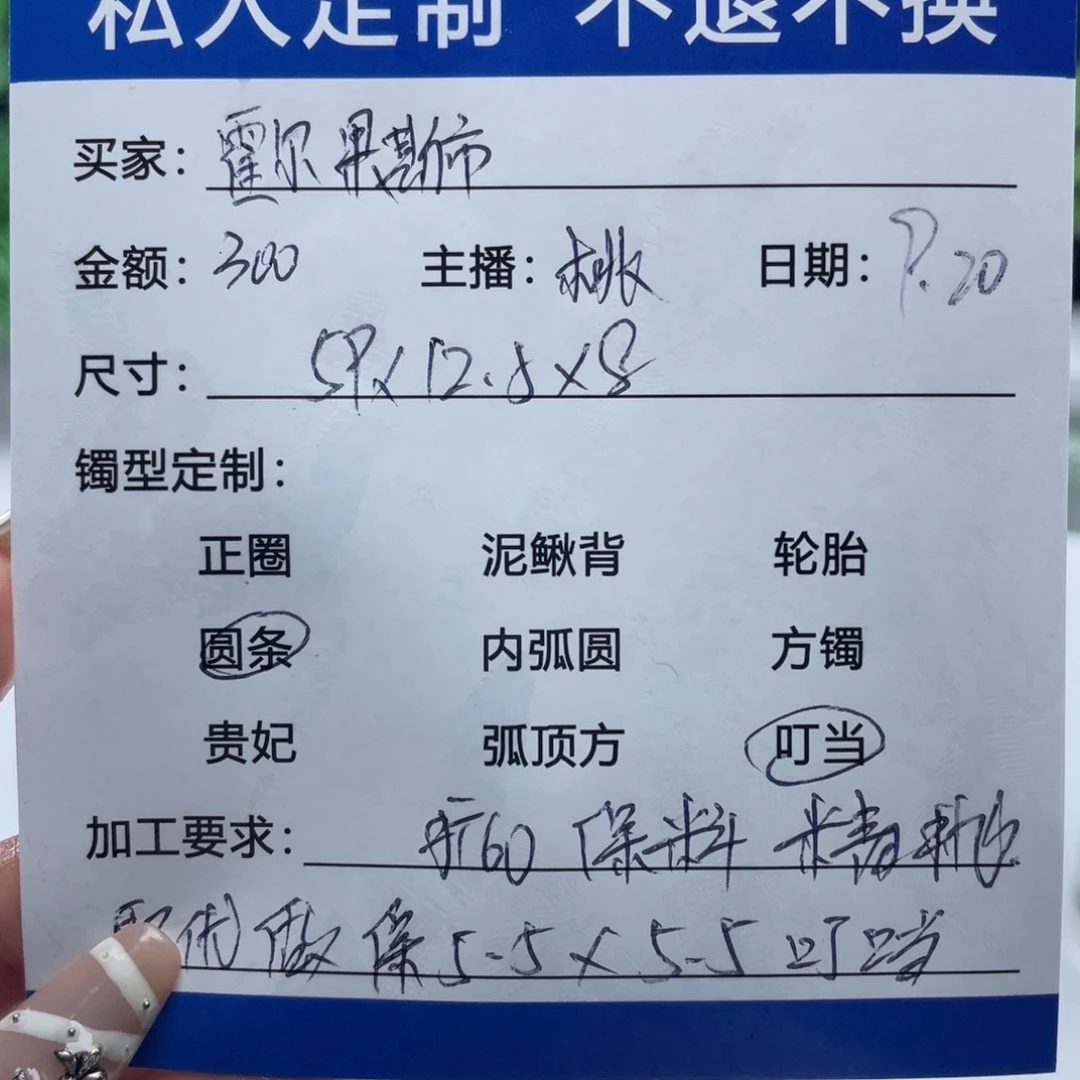 私人定制 不退不换
买家：霍尔果斯市
金额：300 主播：桃 日期：9.20
尺寸：59×12.5×8
镯型定制：
正圈 泥鳅背 轮胎
圆条 内弧圆 方镯
贵妃 弧顶方 叮当
加工要求：扩60 保料 精抛
优 做条5.5×5.5叮当